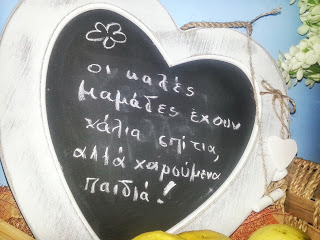 οι καλές
μαμάδες έχουν
χάλια σπίτια,
αλλά χαρούμενα
παιδιά!